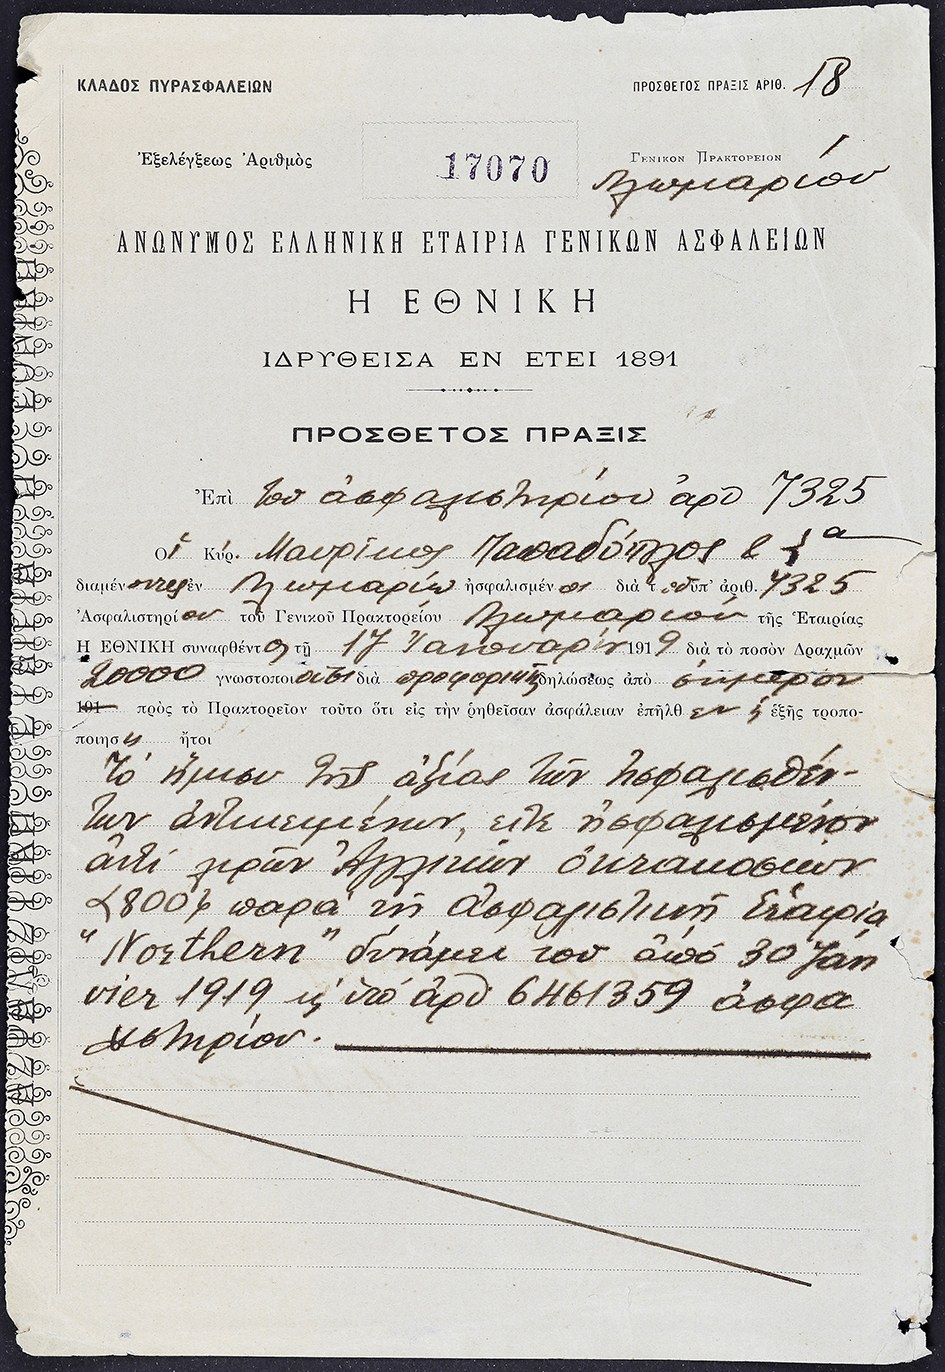 ΚΛΑΔΟΣ ΠΥΡΑΣΦΑΛΕΙΩΝ
ΠΡΟΣΘΕΤΟΣ ΠΡΑΞΙΣ ΑΡΙΘ. 18
Ἐξελέγξεως Ἀριθμὸς 17070
ΓΕΝΙΚΟΝ ΠΡΑΚΤΟΡΕΙΟΝ
Πλωμαρίου
ΑΝΩΝΥΜΟΣ ΕΛΛΗΝΙΚΗ ΕΤΑΙΡΙΑ ΓΕΝΙΚΩΝ ΑΣΦΑΛΕΙΩΝ
Η ΕΘΝΙΚΗ
ΙΔΡΥΘΕΙΣΑ ΕΝ ΕΤΕΙ 1891
ΠΡΟΣΘΕΤΟΣ ΠΡΑΞΙΣ
Ἐπὶ τοῦ ἀσφαλιστηρίου ἀρθ 7325
Οἱ Κύρ. Μαυρίκος Παπαδόπουλος & Σια
διαμένοντες ἐν Πλωμαρίῳ ἠσφαλισμένοι διὰ τοῦ ὑπ' ἀριθ. 7325
Ἀσφαλιστηρίου τοῦ Γενικοῦ Πρακτορείου Πλωμαρίου τῆς Ἑταιρίας
Η ΕΘΝΙΚΗ συναφθέντος τῇ 17 Ἰανουαρίου 1919 διὰ τὸ ποσὸν Δραχμῶν
20000 γνωστοποιοῦσι διὰ προφορικῆς δηλώσεως ἀπὸ σήμερον
191 πρὸς τὸ Πρακτορεῖον τοῦτο ὅτι εἰς τὴν ῥηθεῖσαν ἀσφάλειαν ἐπῆλθεν ἡ ἑξῆς τροπο-
ποίησις ἤτοι
Τὸ ἥμισυ τῆς ἀξίας τῶν ἠσφαλισθέν-
των ἀντικειμένων, εἶνε ἠσφαλισμένον
ἀντὶ λιρῶν Ἀγγλικῶν ὀκτακοσίων
£800 παρὰ τῇ ἀσφαλιστικῇ Ἑταιρίᾳ
"Northern" δυνάμει τοῦ ἀπὸ 30 Jan
vier 1919 ὑπὸ ἀρθ 6461359 ἀσφα
λιστηρίου.